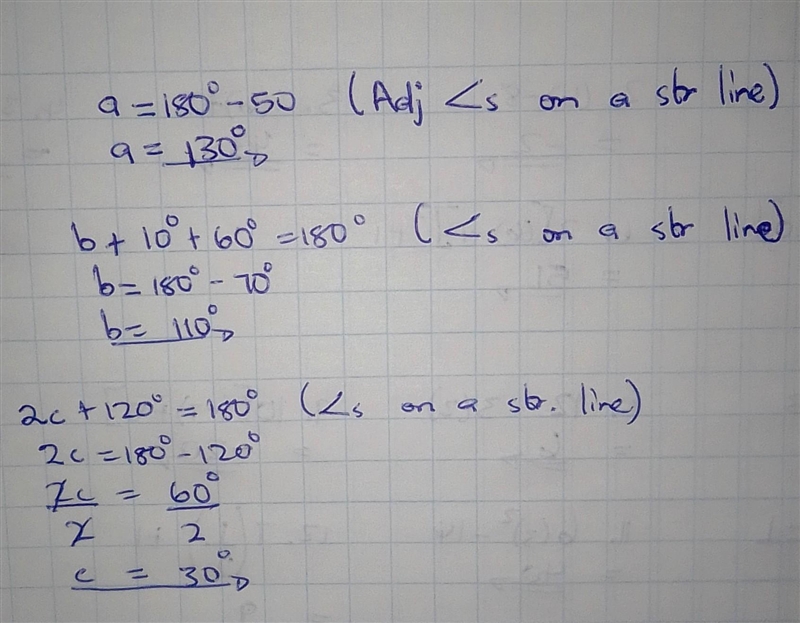 a = 180° - 50 (Adj ∠s on a str line)
a = 130°
b + 10° + 60° = 180° (∠s on a str line)
b = 180° - 70°
b = 110°
2c + 120° = 180° (∠s on a str. line)
2c = 180° - 120°
2c = 60°
2 2
c = 30°